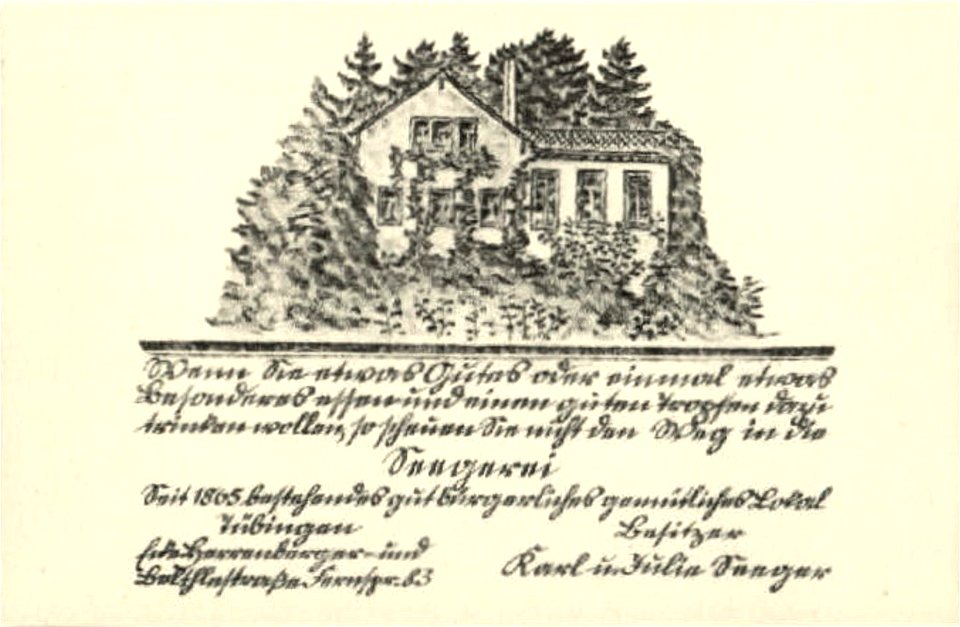 Wenn Sie etwas Gutes oder einmal etwas
Besonderes essen und einen guten Tropfen dazu
trinken wollen, so scheuen Sie nicht den Weg in die
Seegerei
Seit 1865 bestehendes gut bürgerliches gemütliches Lokal
Tübingen
Ecke Herrenberger- und
Fernspr.
Besitzer
Karl u. Julie Seeger